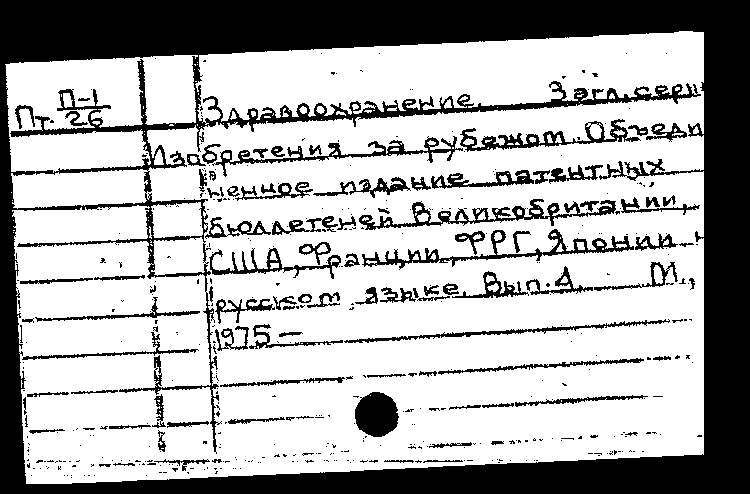 Пт. П-1/26
Здравоохранение. Загл.сери
Изобретения за рубежом. Объеди
ненное издание патентных
бюллетеней Великобритании,
США, Франции, ФРГ, Японии н
русском языке. Вып.4. М.,
1975 —